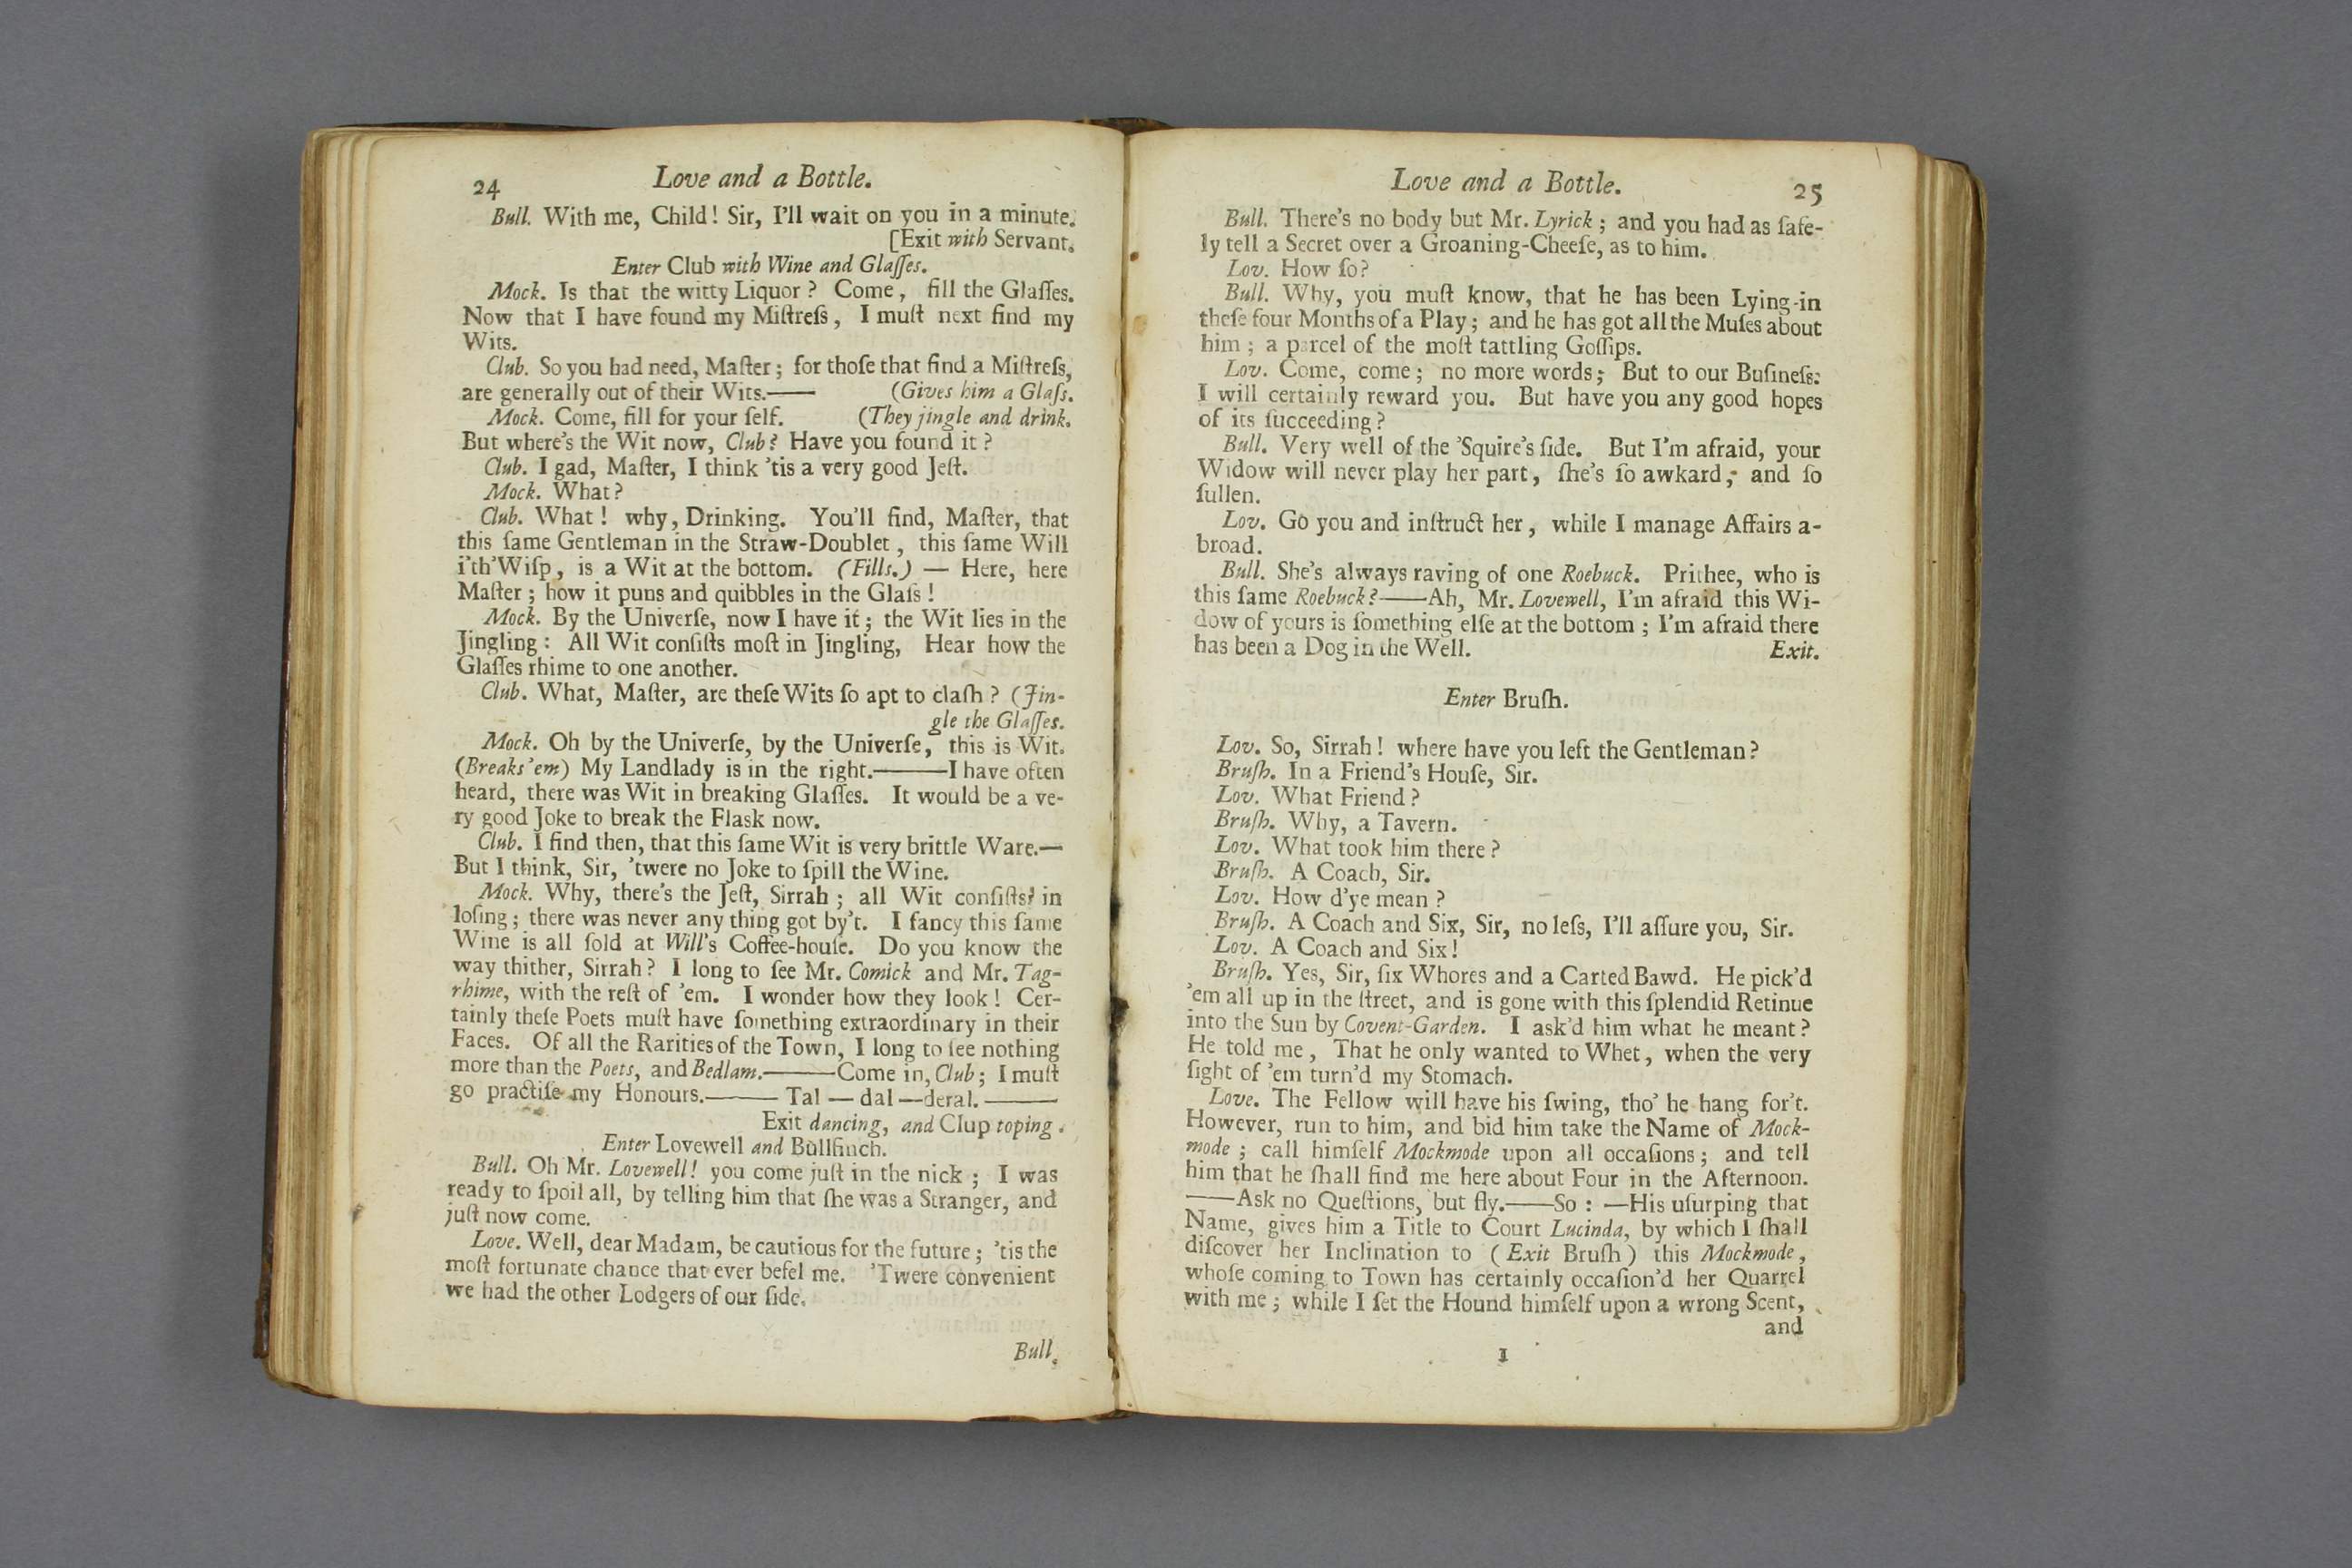 24 Love and a Bottle.
Bull. With me, Child! Sir, I'll wait on you in a minute.
[Exit with Servant.
Enter Club with Wine and Glaſſes.
Mock. Is that the witty Liquor? Come, fill the Glaſſes.
Now that I have found my Miſtreſs, I muſt next find my
Wits.
Club. So you had need, Maſter; for thoſe that find a Miſtreſs,
are generally out of their Wits.—— (Gives him a Glaſs.
Mock. Come, fill for your ſelf. (They jingle and drink.
But where's the Wit now, Club? Have you found it?
Club. I gad, Maſter, I think 'tis a very good Jeſt.
Mock. What?
Club. What! why, Drinking. You'll find, Maſter, that
this ſame Gentleman in the Straw-Doublet, this ſame Will
i'th'Wiſp, is a Wit at the bottom. (Fills.) — Here, here
Maſter; how it puns and quibbles in the Glaſs!
Mock. By the Univerſe, now I have it; the Wit lies in the
Jingling: All Wit conſiſts moſt in Jingling, Hear how the
Glaſſes rhime to one another.
Club. What, Maſter, are theſe Wits ſo apt to claſh? (Jin-
gle the Glaſſes.
Mock. Oh by the Univerſe, by the Univerſe, this is Wit.
(Breaks 'em) My Landlady is in the right.——I have often
heard, there was Wit in breaking Glaſſes. It would be a ve-
ry good Joke to break the Flask now.
Club. I find then, that this ſame Wit is very brittle Ware.—
But I think, Sir, 'twere no Joke to ſpill the Wine.
Mock. Why, there's the Jeſt, Sirrah; all Wit conſiſts in
loſing; there was never any thing got by't. I fancy this ſame
Wine is all ſold at Will's Coffee-houſe. Do you know the
way thither, Sirrah? I long to ſee Mr. Comick and Mr. Tag-
rhime, with the reſt of 'em. I wonder how they look! Cer-
tainly theſe Poets muſt have ſomething extraordinary in their
Faces. Of all the Rarities of the Town, I long to ſee nothing
more than the Poets, and Bedlam.——Come in, Club; I muſt
go practiſe my Honours.—— Tal — dal —deral. ——
Exit dancing, and Clup toping.
Enter Lovewell and Bullfinch.
Bull. Oh Mr. Lovewell! you come juſt in the nick; I was
ready to ſpoil all, by telling him that ſhe was a Stranger, and
juſt now come.
Love. Well, dear Madam, be cautious for the future; 'tis the
moſt fortunate chance that ever befel me. 'Twere convenient
we had the other Lodgers of our ſide.
Bull.
Love and a Bottle. 25
Bull. There's no body but Mr. Lyrick; and you had as ſafe-
ly tell a Secret over a Groaning-Cheeſe, as to him.
Lov. How ſo?
Bull. Why, you muſt know, that he has been Lying-in
theſe four Months of a Play; and he has got all the Muſes about
him; a parcel of the moſt tattling Goſſips.
Lov. Come, come; no more words; But to our Buſineſs:
I will certainly reward you. But have you any good hopes
of its ſucceeding?
Bull. Very well of the 'Squire's ſide. But I'm afraid, your
Widow will never play her part, ſhe's ſo awkard; and ſo
ſullen.
Lov. Go you and inſtruct her, while I manage Affairs a-
broad.
Bull. She's always raving of one Roebuck. Prithee, who is
this ſame Roebuck?——Ah, Mr. Lovewell, I'm afraid this Wi-
dow of yours is ſomething elſe at the bottom; I'm afraid there
has been a Dog in the Well. Exit.
Enter Bruſh.
Lov. So, Sirrah! where have you left the Gentleman?
Bruſh. In a Friend's Houſe, Sir.
Lov. What Friend?
Bruſh. Why, a Tavern.
Lov. What took him there?
Bruſh. A Coach, Sir.
Lov. How d'ye mean?
Bruſh. A Coach and Six, Sir, no leſs, I'll aſſure you, Sir.
Lov. A Coach and Six!
Bruſh. Yes, Sir, ſix Whores and a Carted Bawd. He pick'd
'em all up in the ſtreet, and is gone with this ſplendid Retinue
into the Sun by Covent-Garden. I ask'd him what he meant?
He told me, That he only wanted to Whet, when the very
ſight of 'em turn'd my Stomach.
Love. The Fellow will have his ſwing, tho' he hang for't.
However, run to him, and bid him take the Name of Mock-
mode; call himſelf Mockmode upon all occaſions; and tell
him that he ſhall find me here about Four in the Afternoon.
——Ask no Queſtions, but fly.——So: —His uſurping that
Name, gives him a Title to Court Lucinda, by which I ſhall
diſcover her Inclination to (Exit Bruſh) this Mockmode,
whoſe coming to Town has certainly occaſion'd her Quarrel
with me; while I ſet the Hound himſelf upon a wrong Scent,
and
I